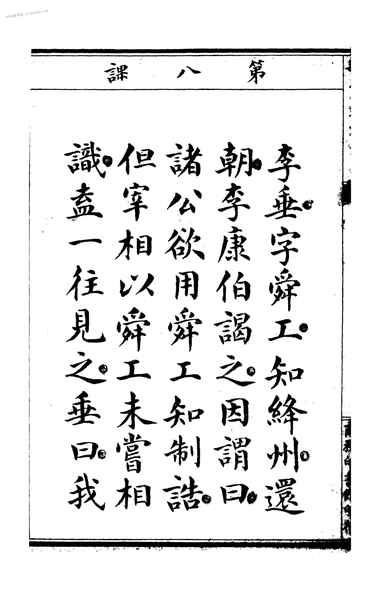 第八課
李垂字舜工。知絳州。還
朝。李康伯謁之。因謂曰。
諸公欲用舜工知制誥。
但宰相以舜工未嘗相
識。盍一往見之。垂曰。我